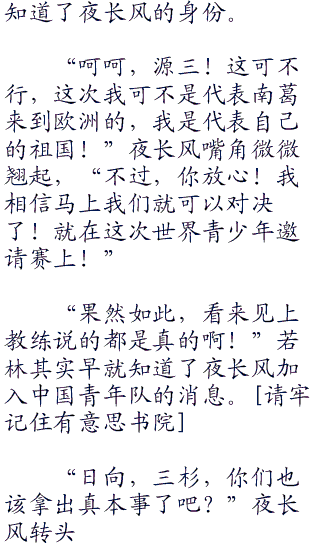 知道了夜长风的身份。
“呵呵，源三！这可不
行，这次我可不是代表南葛
来到欧洲的，我是代表自己
的祖国！”夜长风嘴角微微
翘起，“不过，你放心！我
相信马上我们就可以对决
了！就在这次世界青少年邀
请赛上！”
“果然如此，看来见上
教练说的都是真的啊！”若
林其实早就知道了夜长风加
入中国青年队的消息。[请牢
记住有意思书院]
“日向，三杉，你们也
该拿出真本事了吧？”夜长
风转头